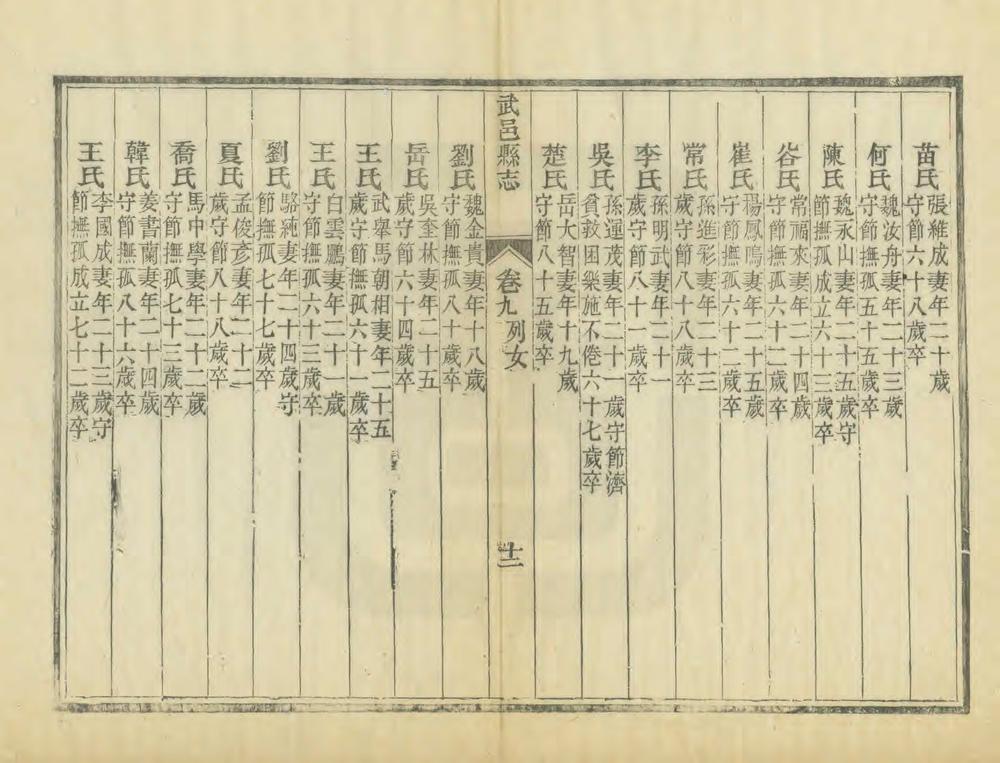 苗氏張維成妻年二十歲守節六十八歲卒
何氏魏汝舟妻年二十三歲守節撫孤五十五歲卒
陳氏魏永山妻年二十五歲守節撫孤成立六十三歲卒
谷氏常福來妻年二十四歲守節撫孤六十二歲卒
崔氏楊鳳鳴妻年二十五歲守節撫孤六十二歲卒
常氏孫進彩妻年二十三歲守節八十八歲卒
李氏孫明武妻年二十一歲守節八十一歲卒
吳氏孫運茂妻年二十一歲守節濟貧救困樂施不倦六十七歲卒
楚氏岳大智妻年十九歲守節八十五歲卒
武邑縣志 卷九 列女 十二
劉氏魏金貴妻年十八歲守節撫孤八十歲卒
岳氏吳奎林妻年二十五歲守節六十四歲卒
王氏武舉馬朝相妻年二十五歲守節撫孤六十一歲卒
王氏白雲鵬妻年二十一歲守節撫孤六十三歲卒
劉氏駱純妻年二十四歲守節撫孤七十七歲卒
夏氏孟俊彥妻年二十二歲守節八十八歲卒
喬氏馬中學妻年二十二歲守節撫孤七十三歲卒
韓氏姜書蘭妻年二十四歲守節撫孤八十六歲卒
王氏李國成妻年二十三歲守節撫孤成立七十二歲卒